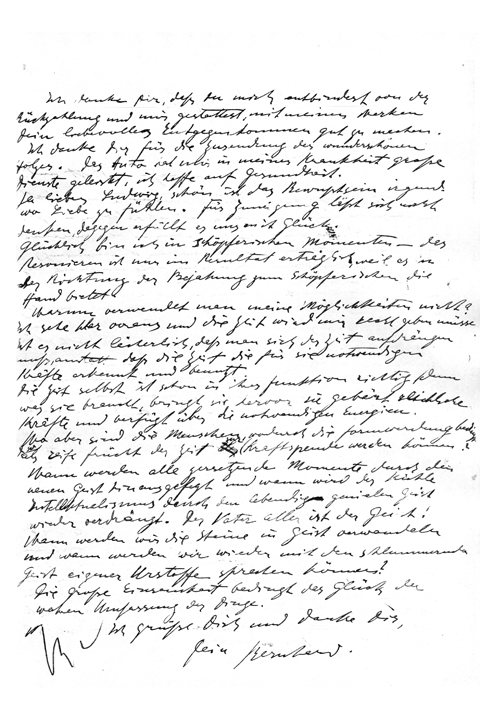 Ich danke Dir, daß Du mich entbindest von der
Rückzahlung und mir gestattest, mit meinen Werken
Dein liebevolles Entgegenkommen gut zu machen.
Ich danke Dir für die Zusendung des wunderschönen
Das Auto hat mir in meiner Krankheit große
Dienste geleistet, ich hoffe auf Gesundheit.
lieber Ludwig, schön ist das Bewußtsein irgend
wo Liebe zu fühlen. Für Zuneigung läßt sich nicht
danken, dagegen erfüllt es uns mit Glück.
Glücklich bin ich in schöpferischen Momenten – das
Resonieren ist nur im Resultat weil es in
der Richtung der Bejahung zum Schöpferischen die
Hand bietet.
Warum verwendet man meine Möglichkeiten nicht?
Ich sehe klar voraus und die Zeit wird mir recht geben müssen
Ist es nicht daß man sich der Zeit aufdrängen
muß, anstatt daß die Zeit die für sie notwendigen
Kräfte erkennt und benutzt.
Die Zeit selbst ist schon in ihrer Funktion richtig denn
was sie braucht, bringt sie hervor sie gebärt
Kräfte und verfügt über die notwendigen Energien.
Wo aber sind die Menschen, wodurch die Formwerdung
als reife Frucht der Zeit Kraftspende werden können?
Wann werden alle zersetzende Momente durch den
neuen Geist hinausgefegt und wann wird der kühle
Intellektualismus durch den lebendig genialen Geist
wieder verdrängt. Der Vater aller ist der Geist!
Wann werden wir die Steine in Geist verwandeln
und wann werden wir wieder mit den schlummernden
Geist eigener Urstoffe sprechen können?
Die große Einsamkeit bedingt das Glück der
wahren Umfassung der Dinge.
Ich grüße Dich und danke Dir,
Dein Bernhard.